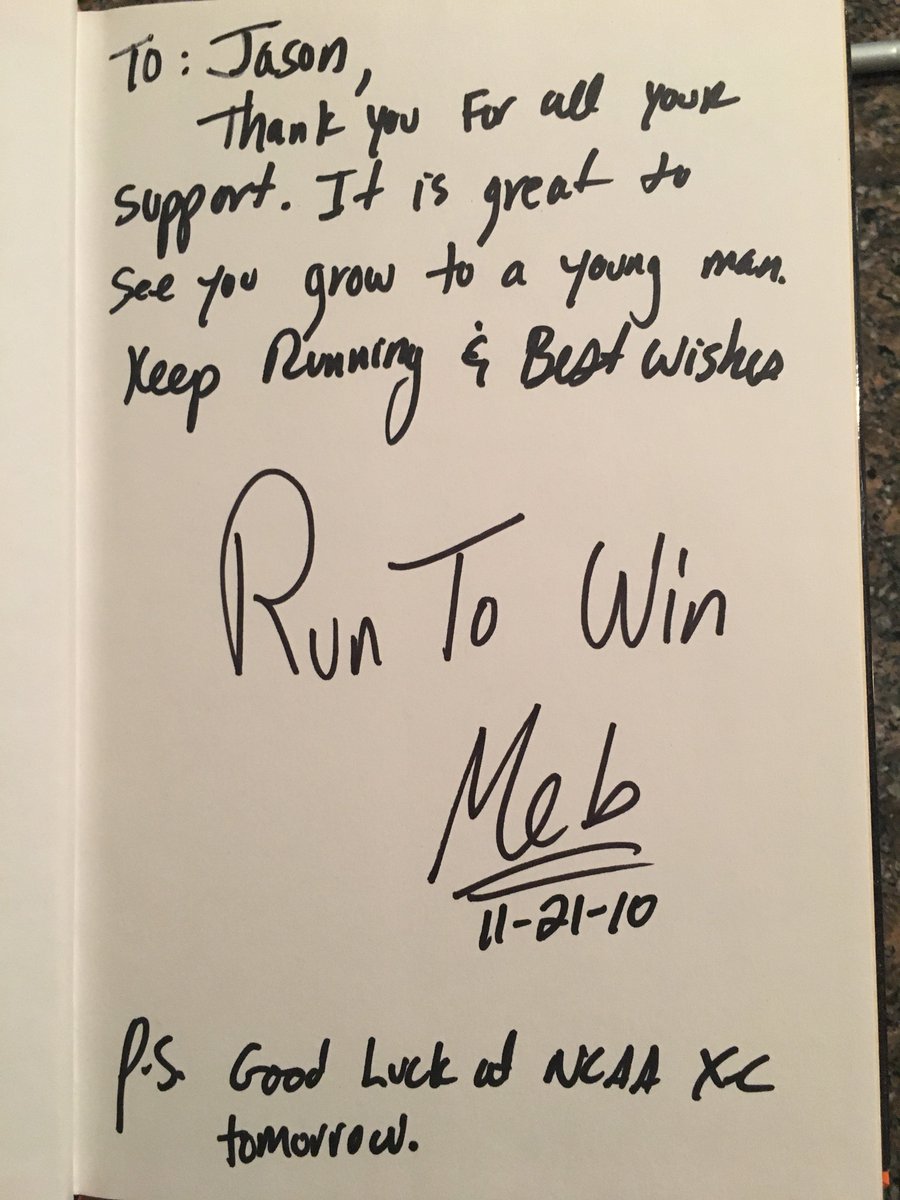 To: Jason,
Thank you For all your
support. It is great to
See you grow to a young man.
Keep Running & Best Wishes
Run To Win
Meb
11-21-10
P.S. Good Luck at NCAA X-C
tomorrow.